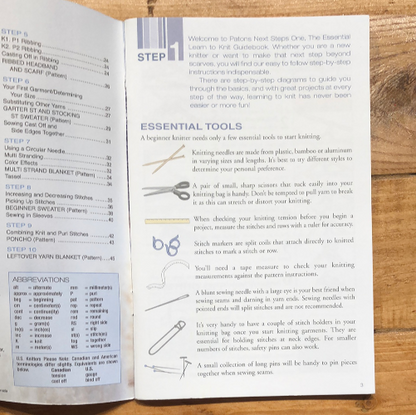 STEP 5
K1, P1 Ribbing
K2, P2 Ribbing
Casting Off in Ribbing
RIBBED HEADBAND
AND SCARF (Pattern)
STEP 6
Your First Garment/Determining
Your Size
Substituting Other Yarns
GARTER ST AND STOCKING
ST SWEATER (Pattern)
Sewing Cast Off and
Side Edges Together
STEP 7
Using a Circular Needle
Multi Stranding
Color Effects
MULTI STRAND BLANKET (Pattern)
Tassel
STEP 8
Increasing and Decreasing Stitches
Picking Up Stitches
BEGINNER SWEATER (Pattern)
Sewing In Sleeves
STEP 9
Combining Knit and Purl Stitches
PONCHO (Pattern)
STEP 10
LEFTOVER YARN BLANKET (Pattern)
ABBREVIATIONS
alt = alternate mm = millimeter(s)
approx = approximately P = purl
beg = beginning pat = pattern
cm = centimeter(s) rep = repeat
cont = continue(ity) rem = remaining
dec = decrease rnd = round
g = gram(s) RS = right side
in(s) = inch(es) sl = slip
inc = increase st(s) = stitch(es)
K = knit tog = together
m = meter(s) WS = wrong side
U.S. Knitters Please Note: Canadian and American
terminologies differ slightly. Equivalents are shown
below. Canadian U.S.
tension gauge
cast off bind off
STEP 1
Welcome to Patons Next Steps One, The Essential
Learn to Knit Guidebook. Whether you are a new
knitter or want to make that next step beyond
scarves, you will find our easy to follow step-by-step
instructions indispensable.
There are step-by-step diagrams to guide you
through the basics, and with great projects at every
step of the way, learning to knit has never been
easier or more fun!
ESSENTIAL TOOLS
A beginner knitter needs only a few essential tools to start knitting.
Knitting needles are made from plastic, bamboo or aluminum
in varying sizes and lengths. It's best to try different styles to
determine your personal preference.
A pair of small, sharp scissors that tuck easily into your
knitting bag is handy. Don't be tempted to pull yarn to break
it as this can stretch or distort your knitting.
When checking your knitting tension before you begin a
project, measure the stitches and rows with a ruler for accuracy.
Stitch markers are split coils that attach directly to knitted
stitches to mark a stitch or row.
You'll need a tape measure to check your knitting
measurements against the pattern instructions.
A blunt sewing needle with a large eye is your best friend when
sewing seams and darning in yarn ends. Sewing needles with
pointed ends will split stitches and are not recommended.
It's very handy to have a couple of stitch holders in your
knitting bag once you start knitting garments. They are
essential for holding stitches at neck edges. For smaller
numbers of stitches, safety pins can also work.
A small collection of long pins will be handy to pin pieces
together when sewing seams.